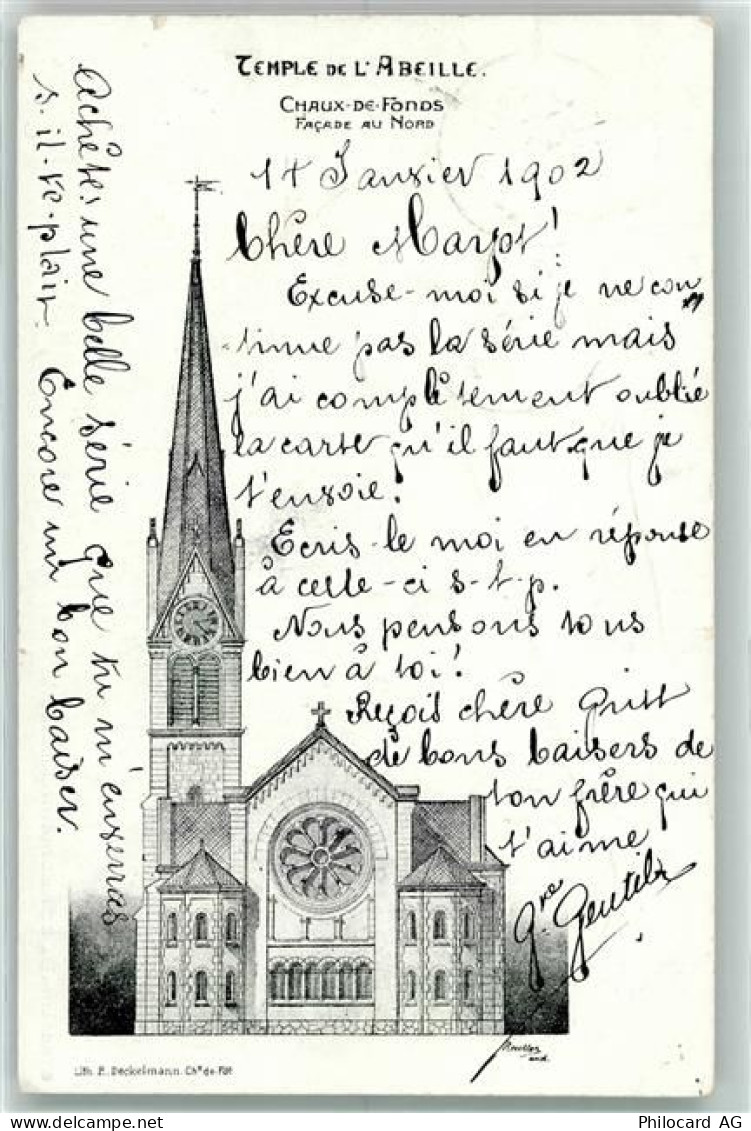 TEMPLE DE L'ABEILLE.
CHAUX-DE-FONDS
FAÇADE AU NORD
14 Janvier 1902
Chère Margot!
Excuse-moi si je ne con
tinue pas la série mais
j'ai complètement oublié
la carte qu'il faut que je
t'envoie.
Ecris-le moi en réponse
à celle-ci s-t-p.
Nous pensons tous
bien à toi!
Reçois chère
de bons baisers de
ton frère qui
t'aime
Gentil
Achêtes une belle série que tu m'enverras
s-il-te-plait. Encore un bon baiser.
Lith. E. Deckelmann. Chx de-Fds
Philocard AG